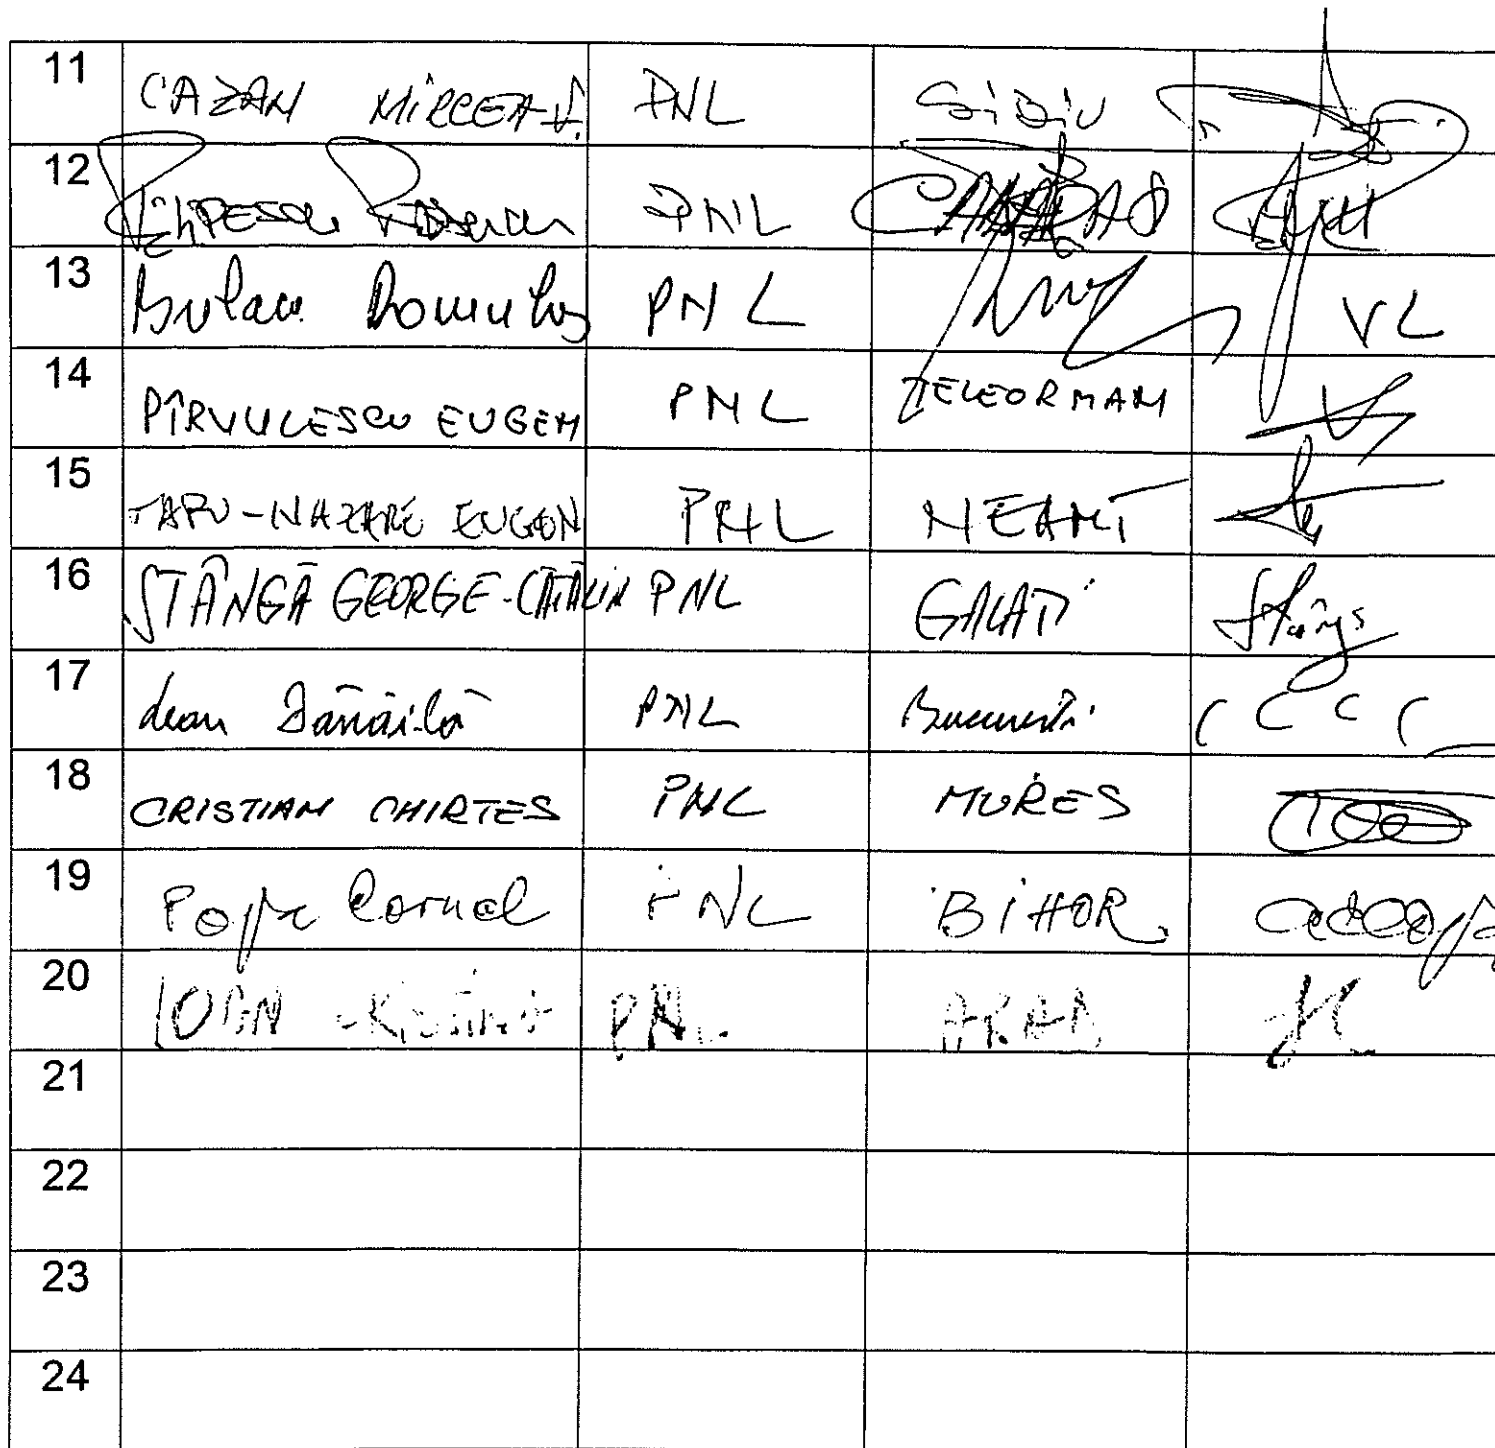 11 CAZAN MIRCEA-V. PNL SIBIU
12 PNL
13 Bulacu Romulus PNL VL
14 PÎRVULESCU EUGEN PNL TELEORMAN
15 ȚAPU-NAZARE EUGEN PNL NEAMȚ
16 STÂNGĂ GEORGE-CĂTĂLIN PNL GALAȚI
17 Leon Dănăilă PNL București
18 CRISTIAN CHIRTEȘ PNL MUREȘ
19 Popa Cornel PNL BIHOR
20 PNL ARAD
21
22
23
24